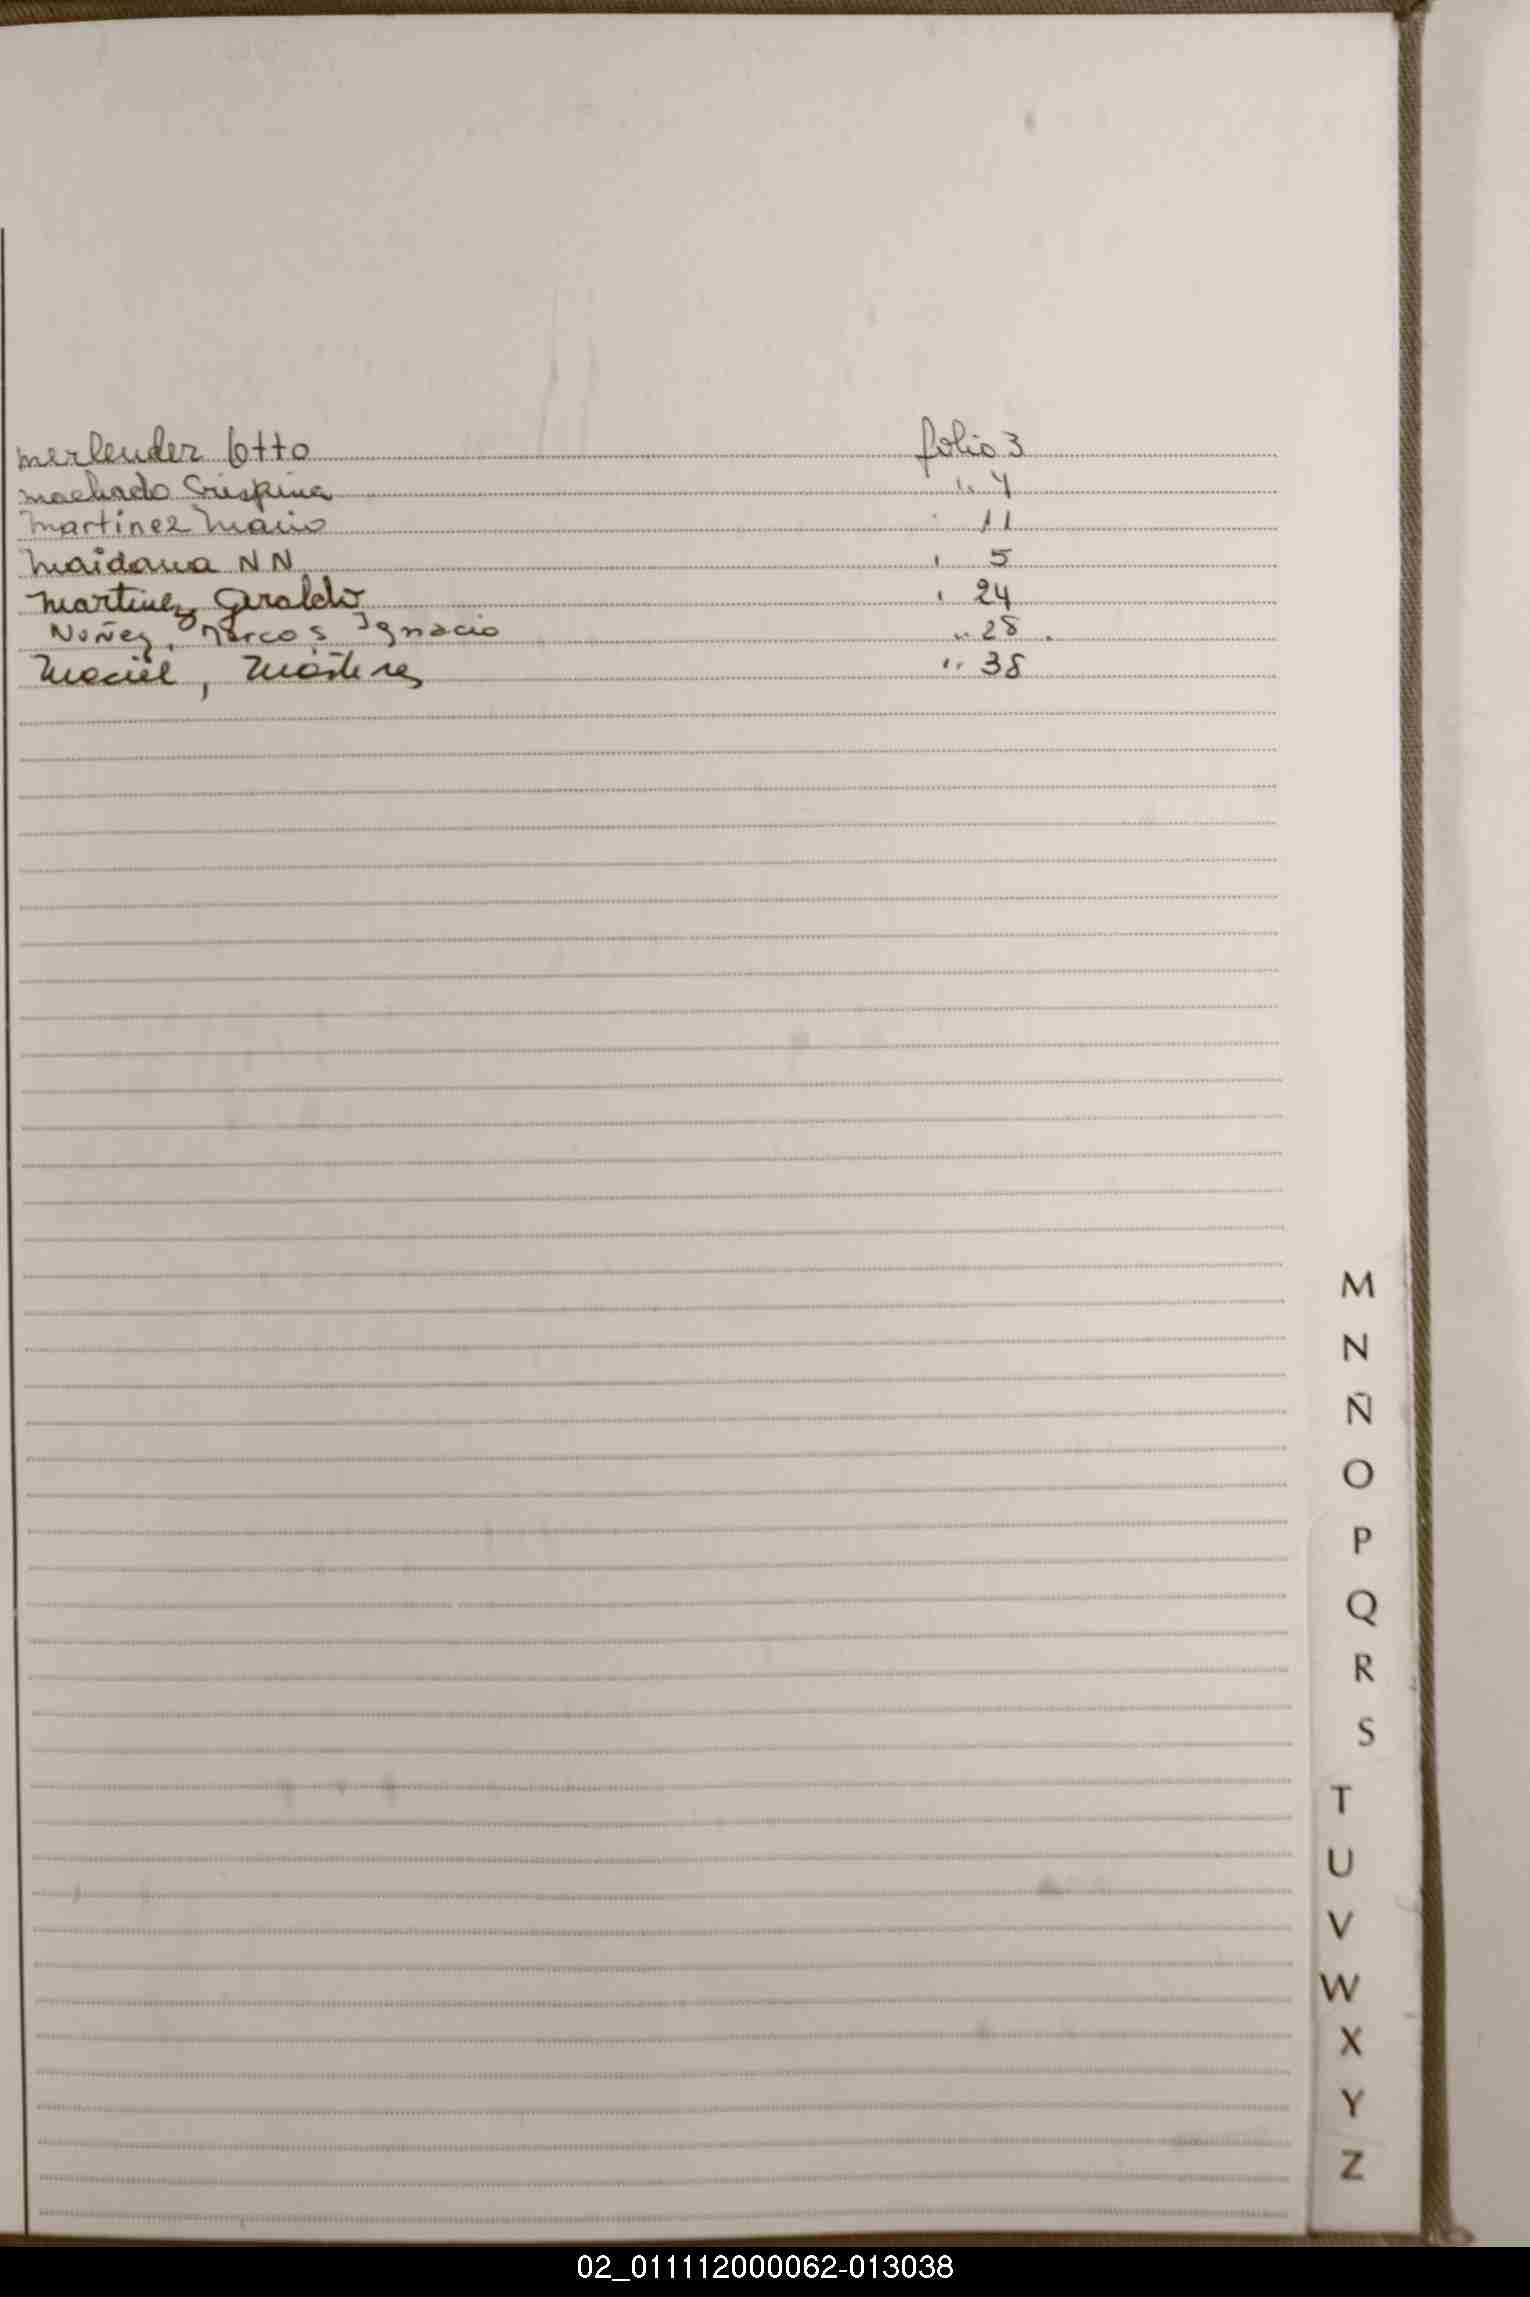 merlender Otto folio 3
machado Crispina " 4
Martinez Mario 11
Maidana NN 5
Martinez, Geraldo 24
Nuñez, Marcos Ignacio " 28.
Maciel, " 38
M
N
Ñ
O
P
Q
R
S
T
U
V
W
X
Y
Z
02_011112000062-013038